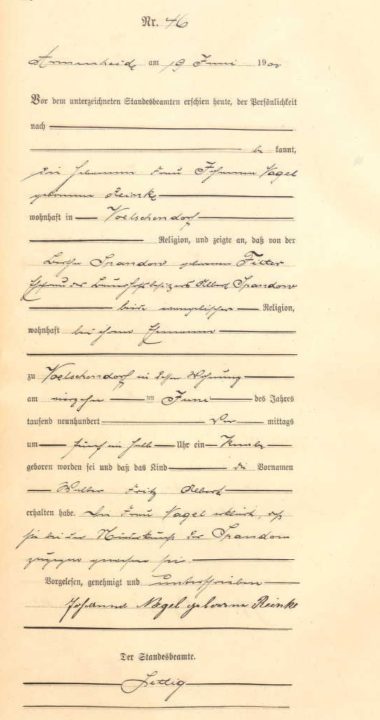 Nr. 46
Armenheide am 19 Juni 190
Vor dem unterzeichneten Standesbeamten erschien heute, der Persönlichkeit
nach
be kannt,
die Hebamme Frau Johanna Nagel
geborene Reinke
wohnhaft in Voelschendorf
Religion, und zeigte an, daß von der
Spandow geborene
Ehefrau des Albert Spandow
beide evangelischer Religion,
wohnhaft bei ihrem Ehemann
zu Voelschendorf in Wohnung
am vierzehn ten Juni des Jahres
tausend neunhundert Vor mittags
um fünf ein halb Uhr ein Knabe
geboren worden sei und daß das Kind die Vornamen
Walter Fritz Albert
erhalten habe. Die Frau Nagel erklärt, daß
sie bei der Niederkunft der Spandow
zugegen gewesen sei
Vorgelesen, genehmigt und unterschrieben
Johanna Nagel geborene Reinke
Der Standesbeamte.